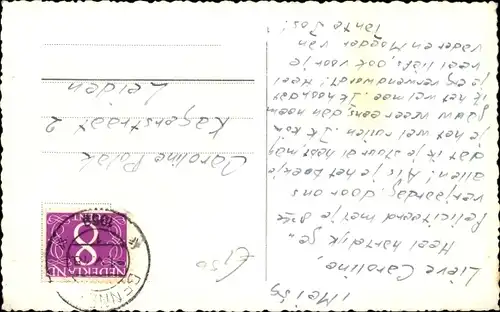 1 Mei '59
Lieve Caroline,
Heel hartelijk ge-
feliciteerd met je 8ste
verjaardag, door ons
allen! Als je het boekje
dat ik je stuur al hebt, mag
je het wel ruilen. Ik kom
gauw weer eens aan hoor
je erg verwend wordt! Heel
veel liefs, ook voor je
Vader en Moeder van
Tante Jos!
Caroline Polak
Kagerstraat 2
Leiden
NEDERLAND
8
CENT
BENNE
£1,50